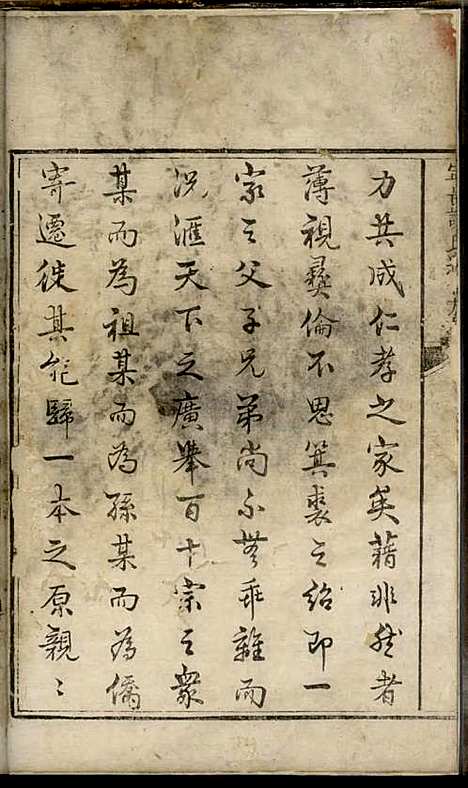 力共成仁孝之家矣藉非然者
薄視彞倫不思箕裘之紹即一
家之父子兄弟尚不無乖離而
況滙天下之廣舉百十宗之衆
某而為祖某而為孫某而為僑
寄遷徙其能歸一本之原親〻